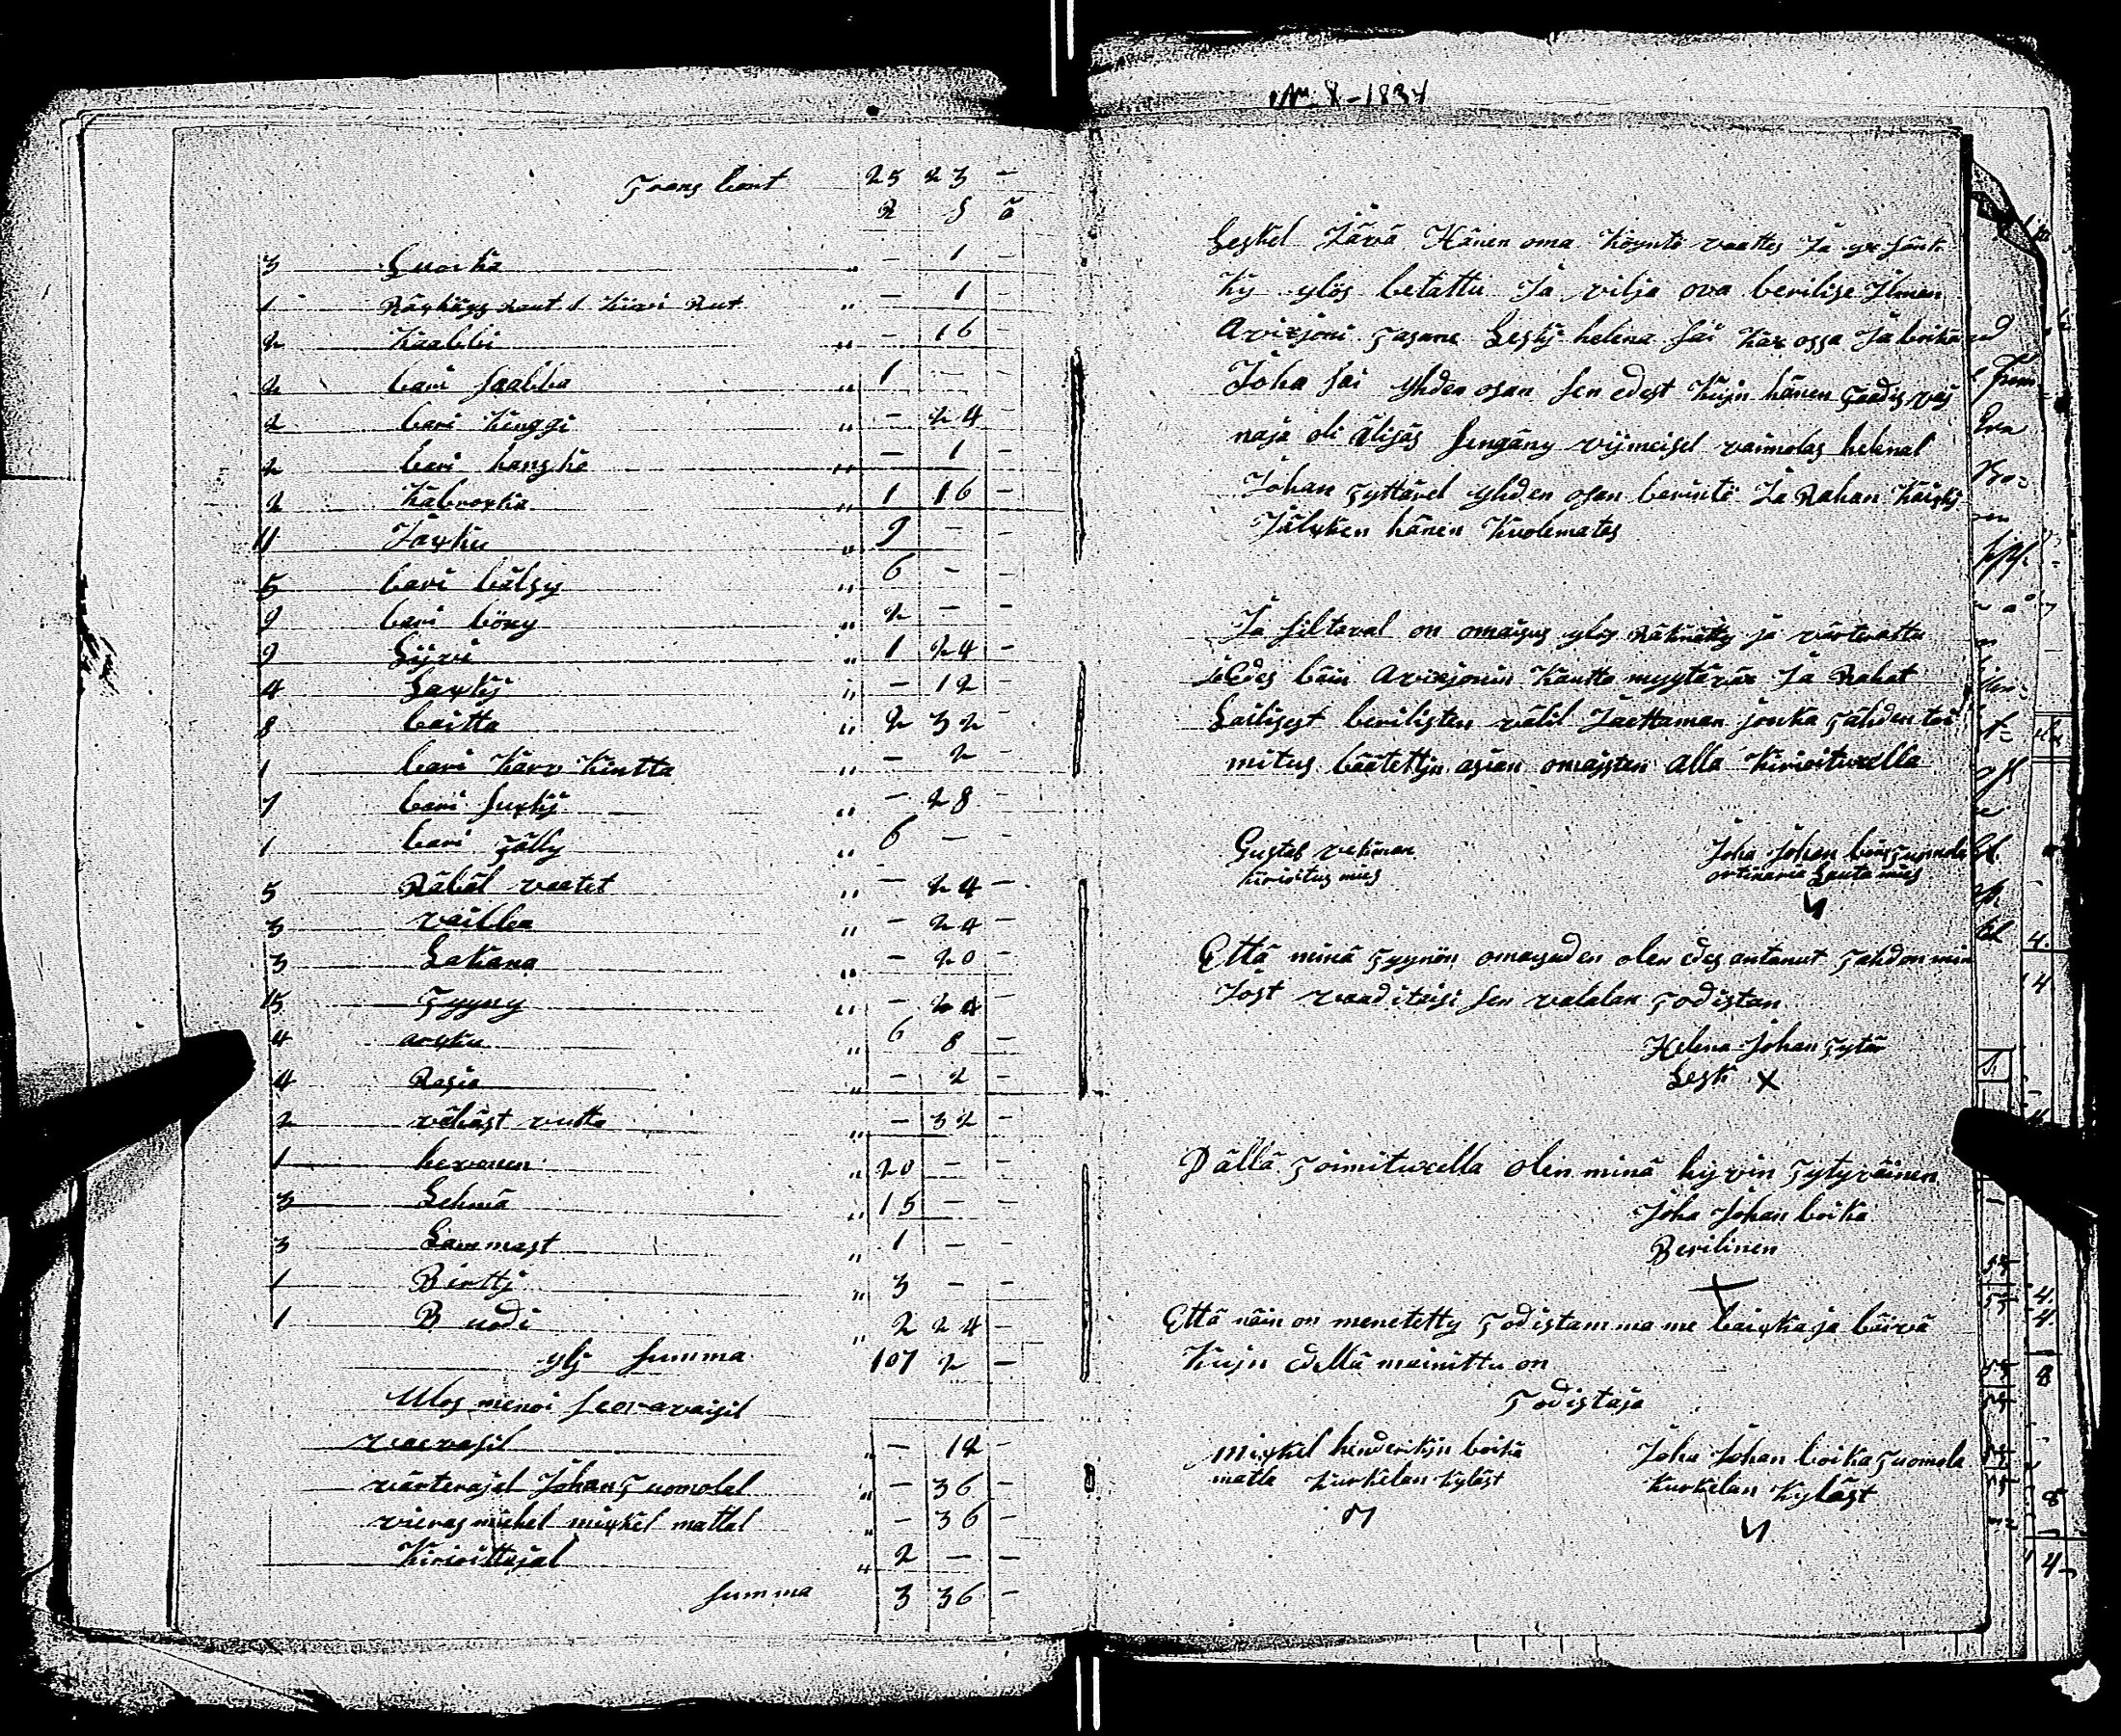 Trans bort 25 23 -
R S ö
3 Luocka " - 1 -
1 Räyhäys raut 1 Kiwi Rut " - 1 -
2 Kaabbi " - 16 -
2 bari saabba " 1 - -
2 bari Kenggi " - 24 -
2 bari hanska " - 1 -
2 Kabroska " 1 16 -
11 Jaxku " 9 - -
5 bari bälsy " 6 - -
9 bari böxy " 2 - -
9 Lijvi " 1 24 -
4 Laxkij " - 12 -
8 baitta " 2 32 -
1 bari Karv Kintta " - 2 -
7 bari suxkij " - 28 -
1 bari Tälly " 6 - -
5 Räbäl vaatet " - 24 -
3 vaibba " - 24 -
3 Lakana " - 20 -
15 Tyyny " - 24
4 arxku " 6 8 -
4 Rasia " - 2 -
2 wähäst vutta " - 32 -
1 hevonen " 20 - -
3 Lehmä " 15 - -
3 Lammast " 1 - -
1 Birttj " 3 - -
1 Buodi " 2 24 -
ylj summa 107 2 -
Ulos menoi seoravaisil
vaevasil " - 14 -
wärterajal Johan Tuomolal " - 36 -
vieras miehel mixkel mattal " - 36 -
Kirioittajal " 2 - -
summa 3 36 -
No. 8 - 1834
Leskel Jävä Hänen oma Köyntö vaattes Ja yx sänk
Ky ylös betattu Ja vilja ova berilise Ilman
Avixjoni Tasane Leskj helena sai Kax ossa Ja boika
Joha sai Yhden osan sen edest Kujn hänen Taadis vaj
naja oli älisäs sengäny vijmeisel vaimolas helenal
Johan Tyttärel yhden osan berintö Ja Rahan Käiskj
Jälxken hänen Kuolematas
Ja siltaval on omaisus ylös Räknätty ja värterattu
joEdes bäin Avixjonin Kautta myytävän Ja Rahat
Lailisest berilisten välil Jaettaman jonka Tähden toi
mitus bäätettjn asian omaisten alla Kirioituxella
Gustaf vekman
Kirioitus mies
Joha Johan boig Tuomola
ortinaria Lauta mies
Että minä Tyynön omaisuden olen edes antanut Tahdon min
Jost vaaditaisi sen valalan Todistan
Helena Johan Tytär
Leski X
Tällä Toimituxella olin minä hyvin Tytyväinen
Joha Johan boika
Berilinen
X
Että näin on menetetty Todistamma me baixka ja bäivä
Kujn edellä mainittu on
Todistaja
mixkel henderikijn boika
matla Kurkelan Kyläst
Joha Johan boika Tuomola
Kurkelan Kyläst